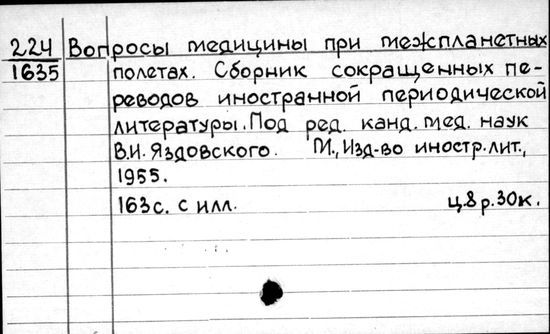 224 Вопросы медицины при межпланетных
1635 полетах. Сборник сокращенных пе-
реводов иностранной периодической
литературы. Под ред. канд. мед. наук
В.И. Яздовского. М., Изд-во иностр. лит.,
1955.
163 с. с илл. ц. 8 р. 30 к.